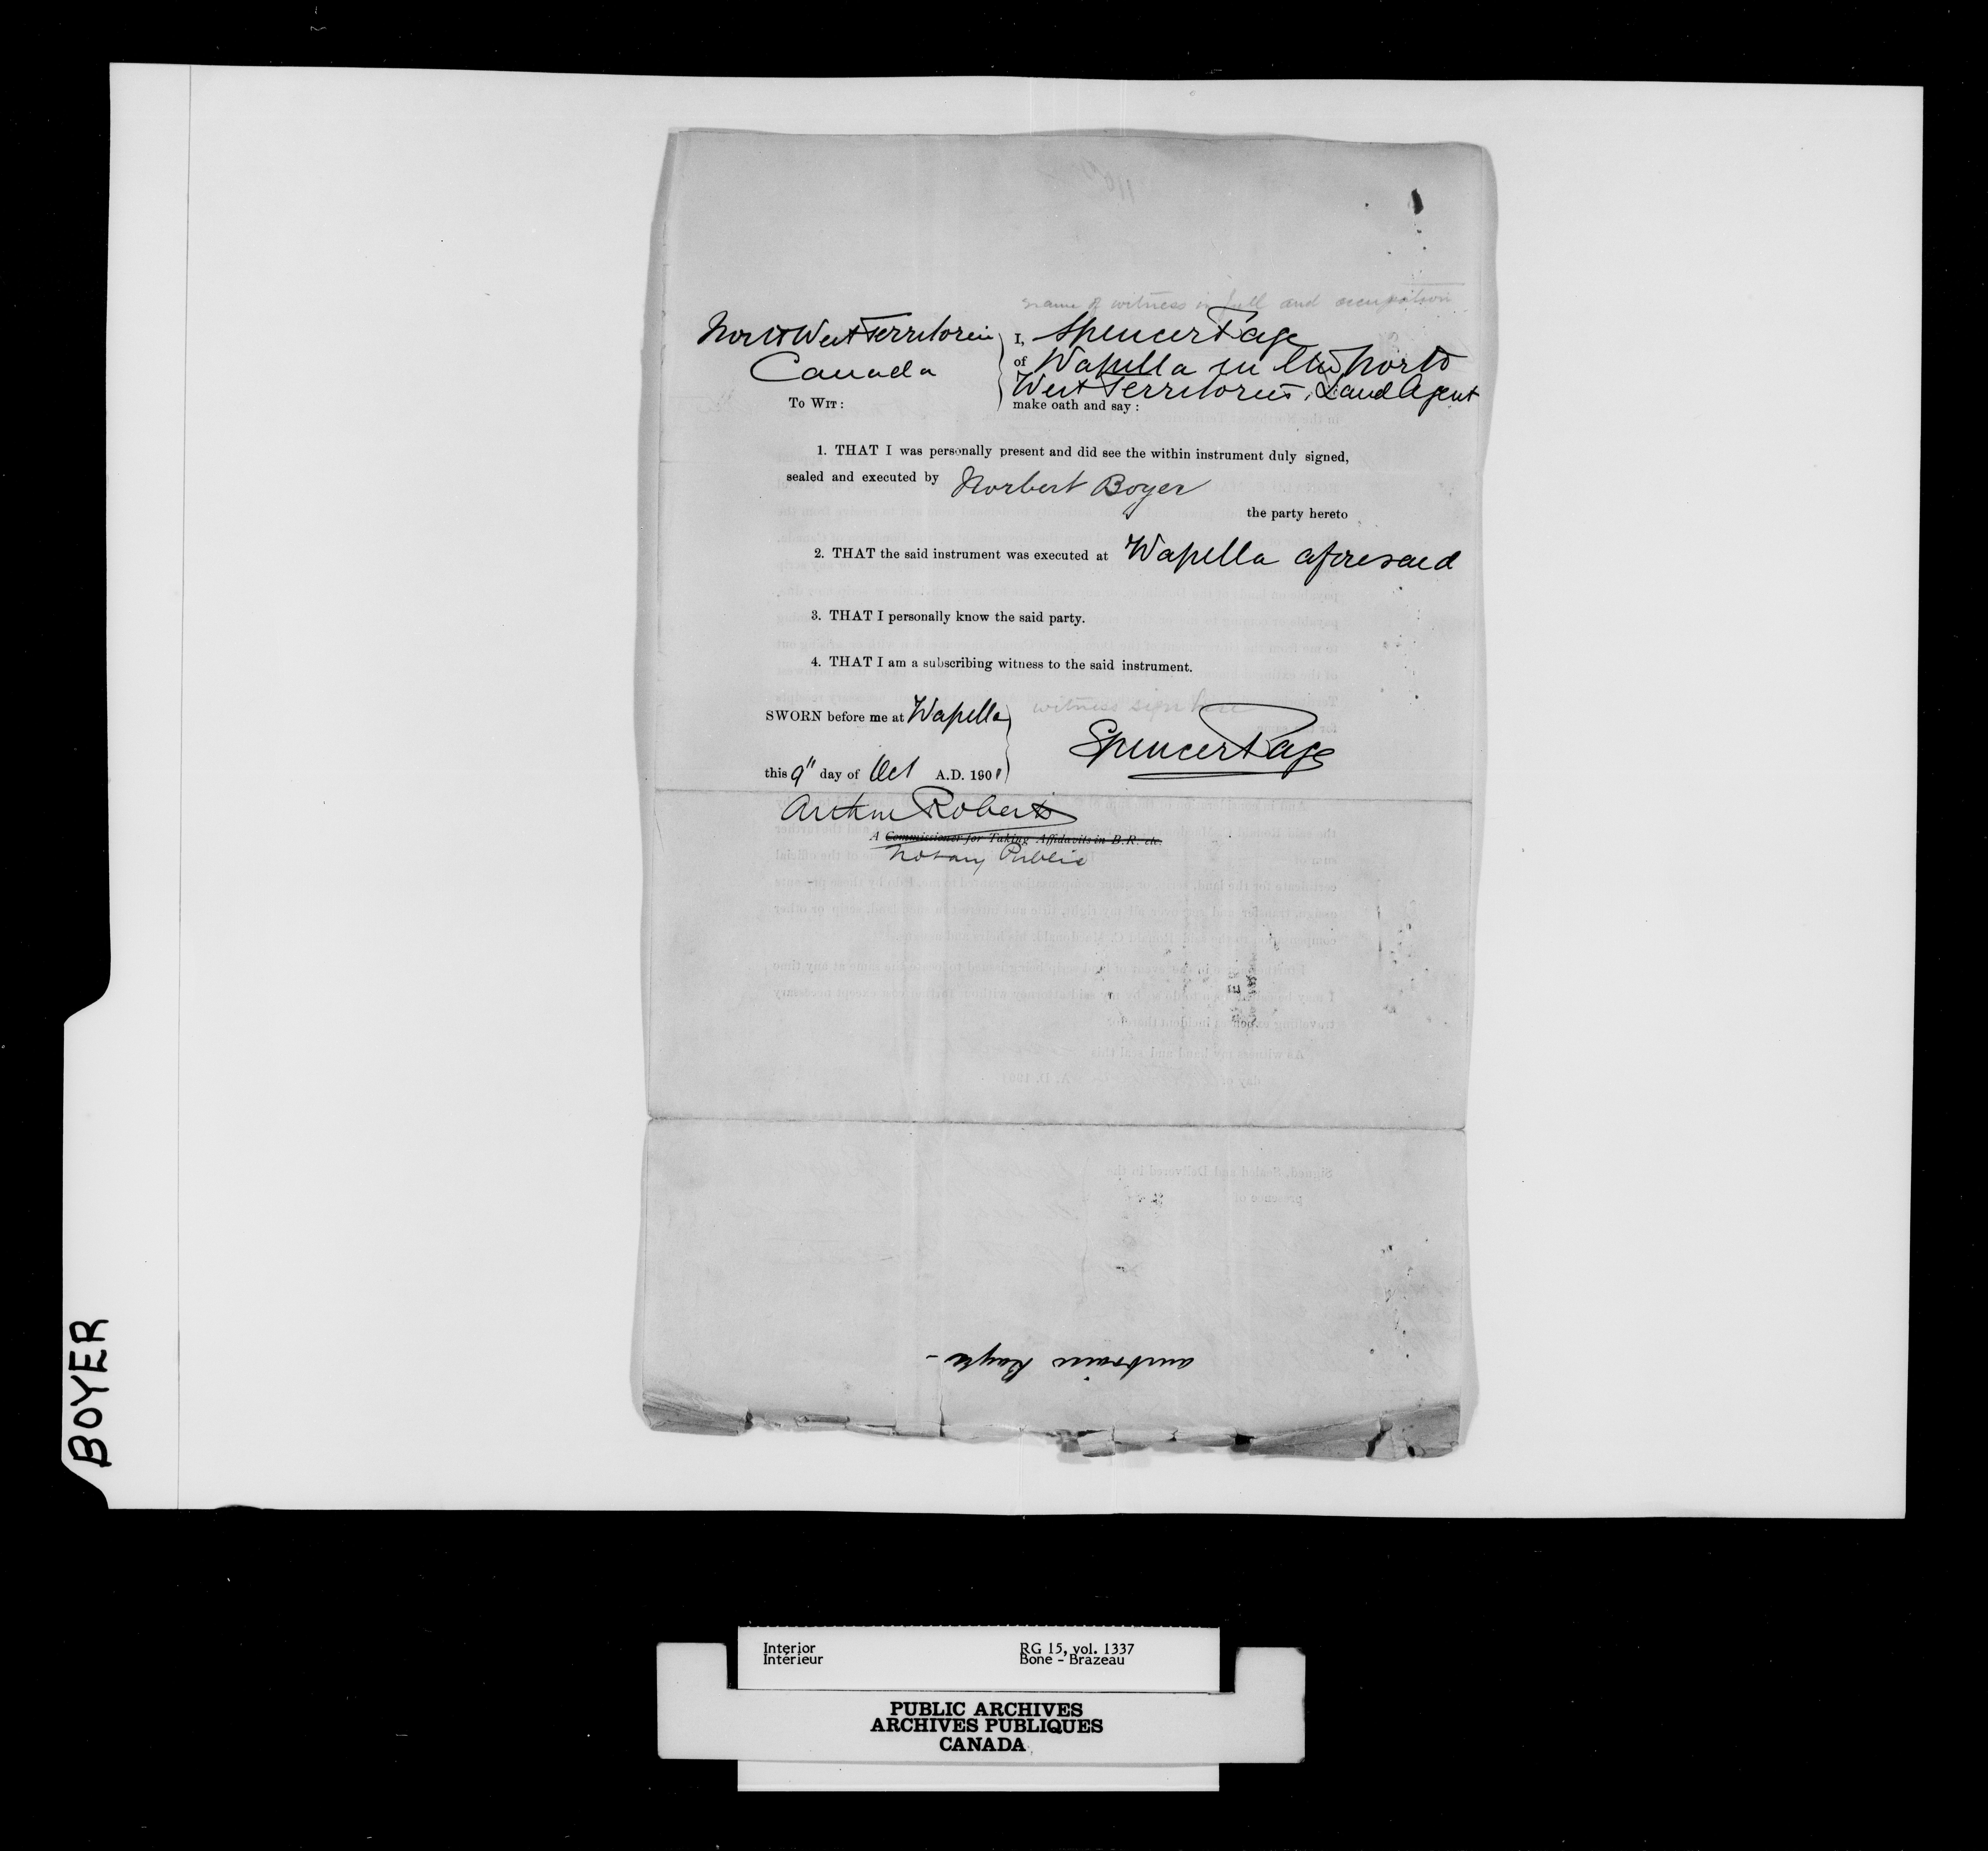 name of witness in full and occupation
North West Territories
Canada
To Wit:
I, Spencer Page
of Wapella in the North
West Territories, Land Agent
make oath and say:
1. THAT I was personally present and did see the within instrument duly signed,
sealed and executed by Norbert Boyer
the party hereto
2. THAT the said instrument was executed at Wapella aforesaid
3. THAT I personally know the said party.
4. THAT I am a subscribing witness to the said instrument.
witness sign here
SWORN before me at Wapella
Spencer Page
this 9" day of Oct A.D. 1901
Arthur Roberts
A Commissioner for Taking Affidavits in B.R. etc.
Notary Public
BOYER
Interior
Intérieur
RG 15, vol. 1337
Bone - Brazeau
PUBLIC ARCHIVES
ARCHIVES PUBLIQUES
CANADA